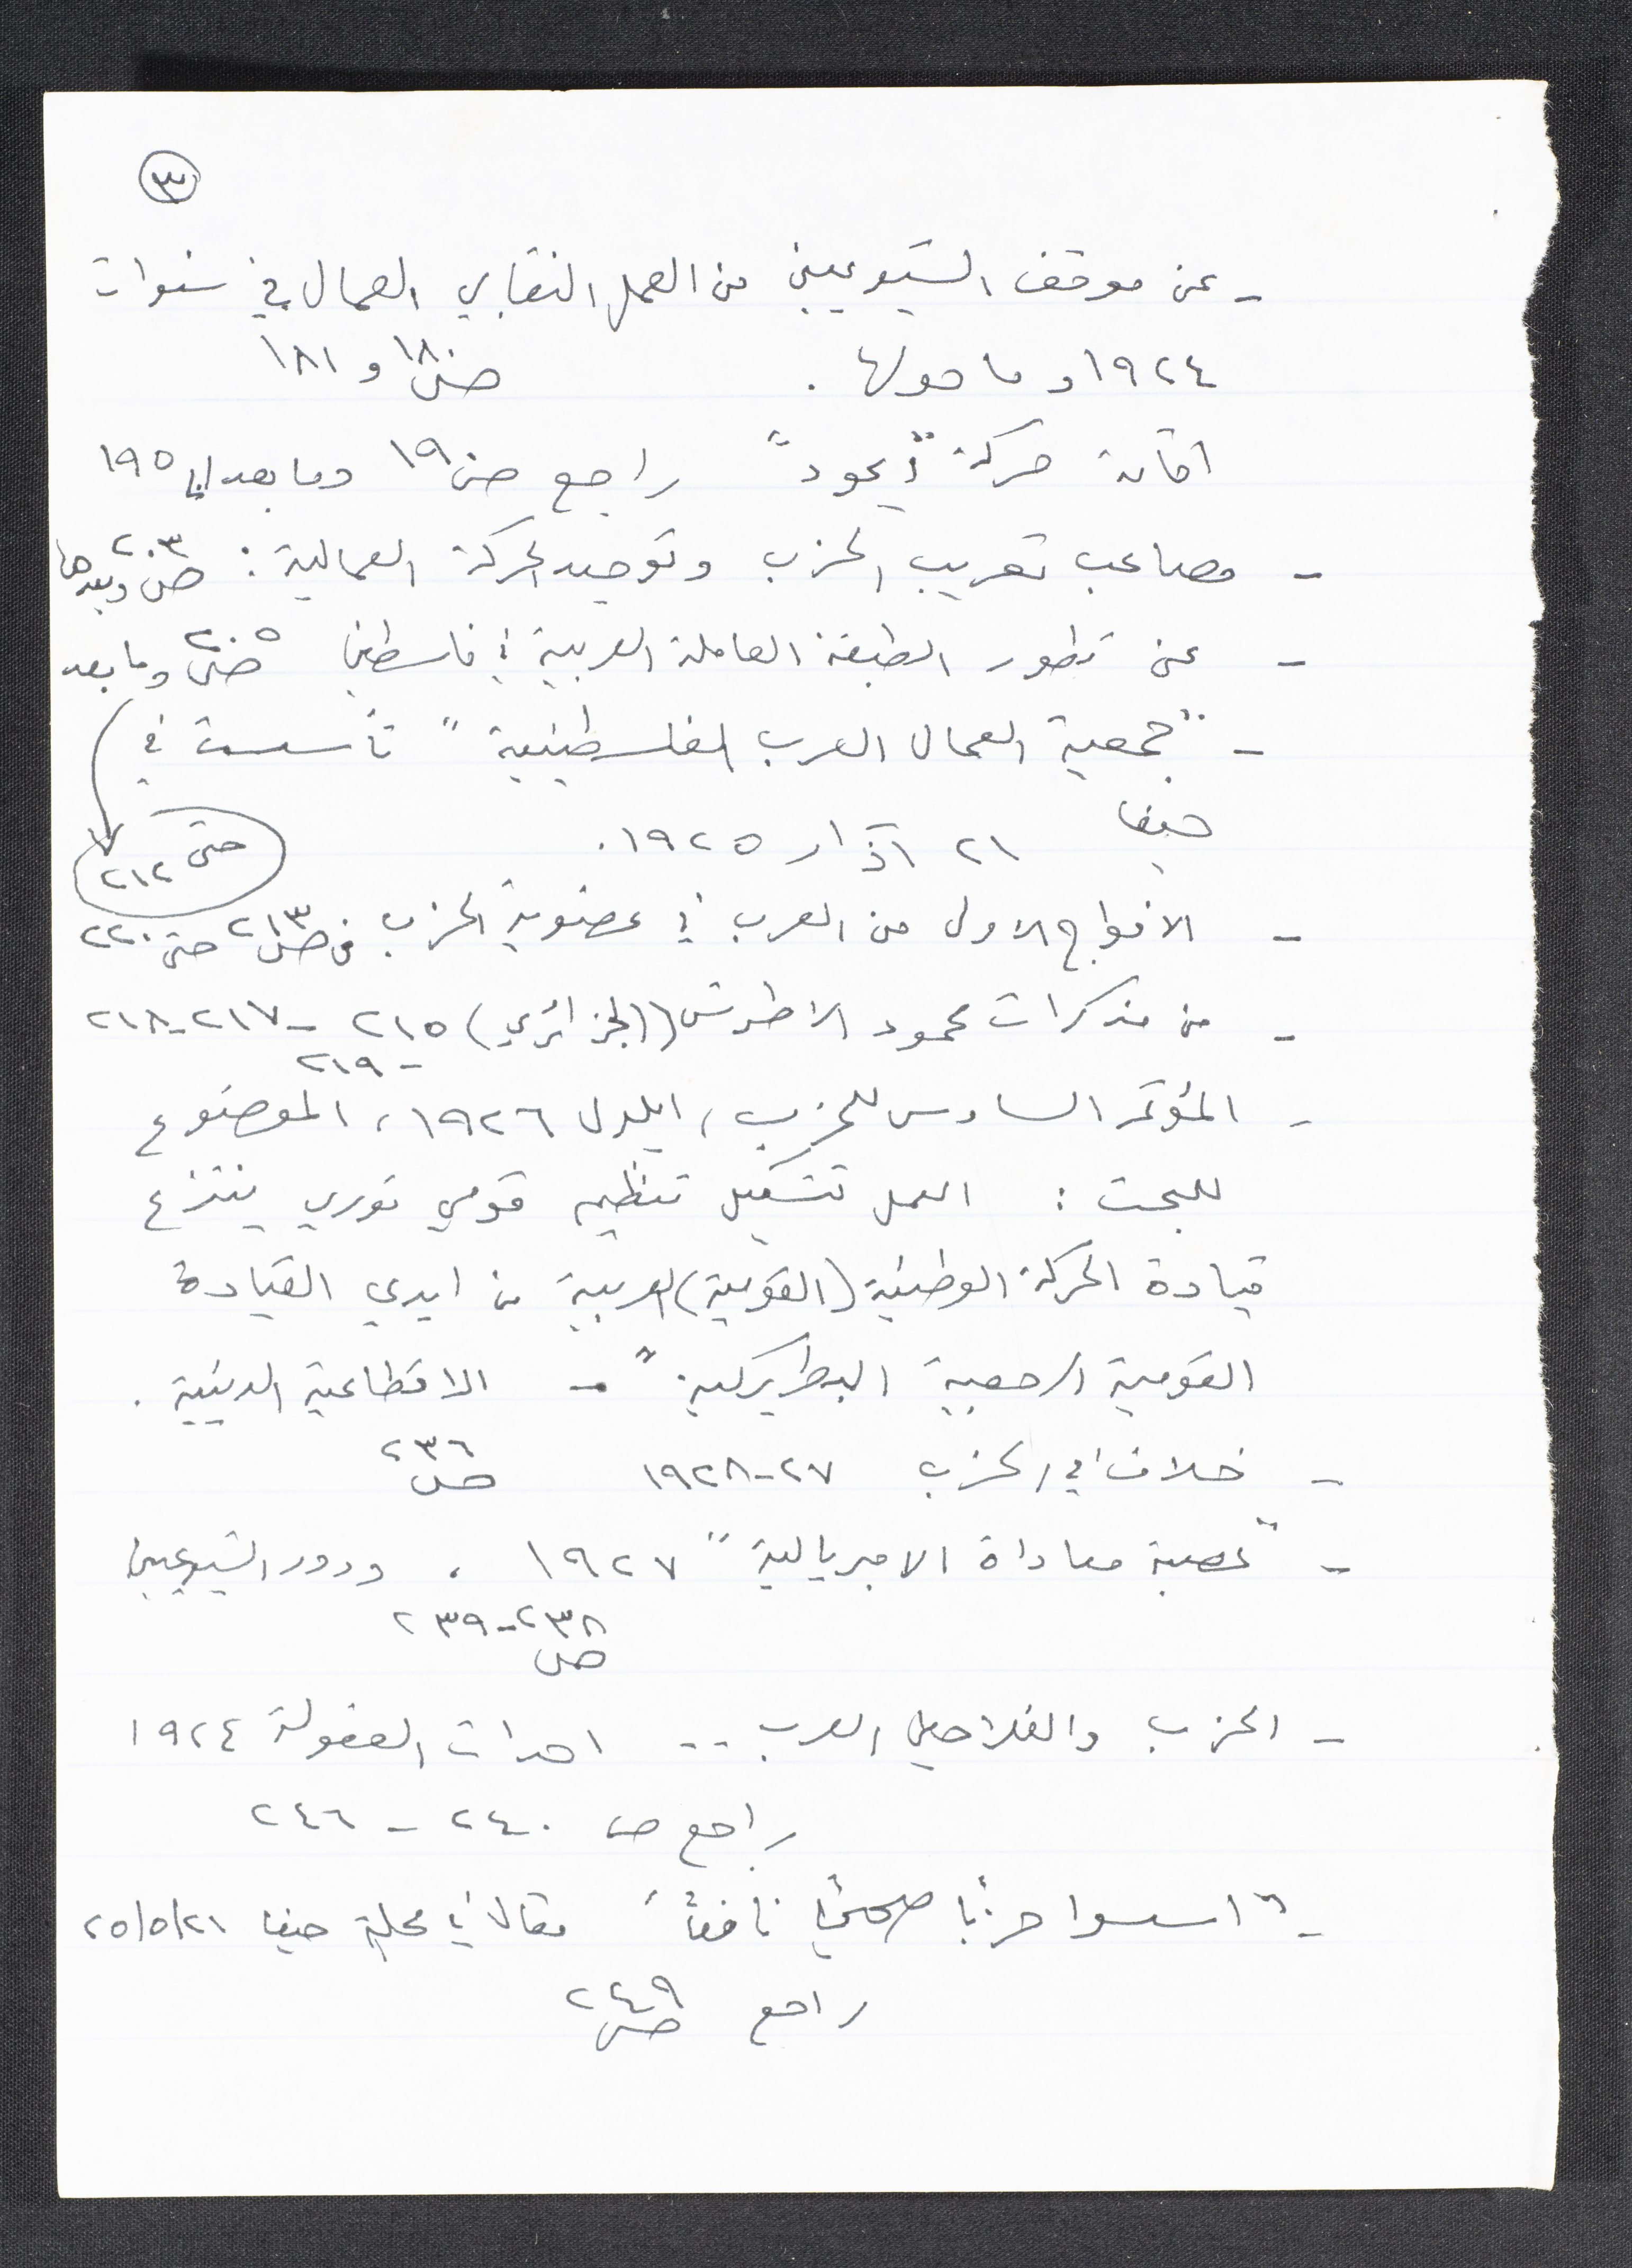 ٣
- عن موقف الشيوعيين من العمل النقابي العمالي في سنوات
١٩٢٤ وما حولها. ص ١٨٠ و ١٨١
اقامة حركة "إيحود" راجع ص ١٩ وما بعد ١٩٥
- مصاعب تعريب الحزب وتوحيد الحركة العمالية: ص ٢٠٣ وبعدها
- عن تطور الطبقة العاملة العربية في فلسطين ص ٢٠٥ وما بعد
- "جمعية العمال العرب الفلسطينية" تأسست في
حيفا ٢١ آذار ١٩٢٥.
حتى ٢١٢
- الافواج الاولى من العرب في عضوية الحزب. من ص ٢١٣ حتى ٢٢٠
- من مذكرات محمود الاطرش (الجزائري) ٢١٥ - ٢١٧-٢١٨
- ٢١٩
- المؤتمر السادس للحزب، ايلول ١٩٢٦، الموضوع
للبحث: العمل تشكيل تنظيم قومي ثوري ينتزع
قيادة الحركة الوطنية (القومية) العربية من ايدي القيادة
القومية الرجعية البطريركية" - الاقطاعية الدينية.
- خلاف في الحزب ٢٧-١٩٢٨ ص ٢٣٦
- "عصبة معاداة الامبريالية" ١٩٢٧، ودور الشيوعيين
ص ٢٣٨-٢٣٩
- الحزب والفلاحين العرب .. احداث العفولة ١٩٢٤
راجع ص ٢٤٠ - ٢٤٦
- "اسسوا حزبًا نافعًا" مقال في مجلة حيفا ٢٥/٥/٢١
راجع ص ٢٤٩